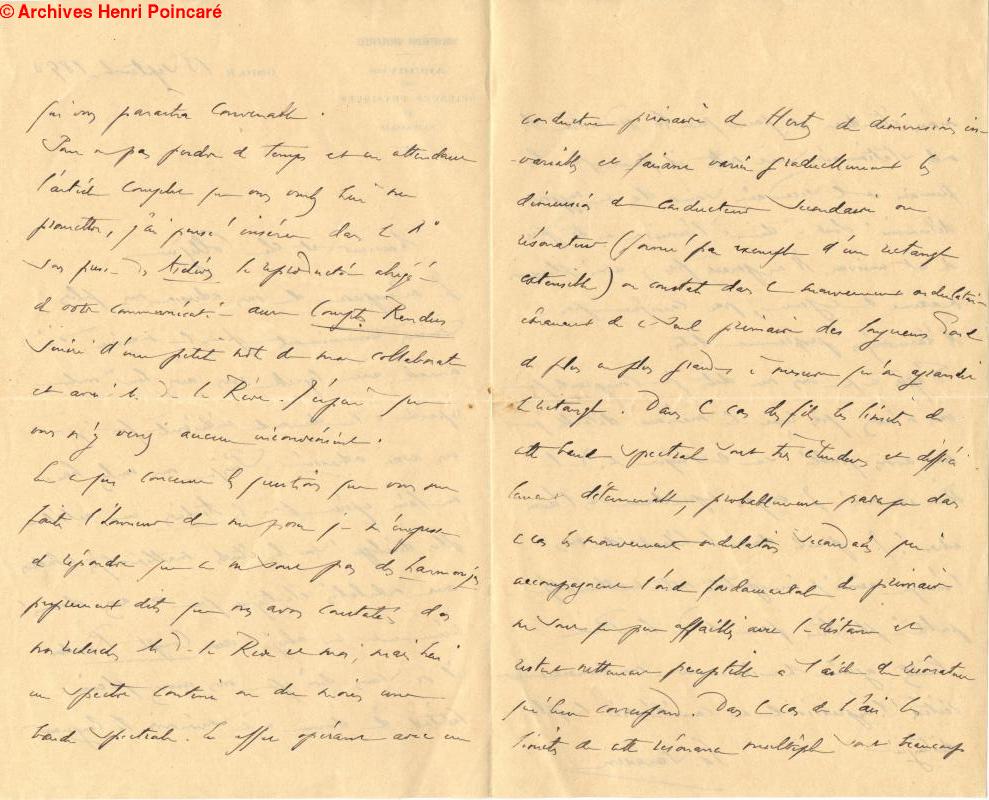 © Archives Henri Poincaré
qui vous paraitra convenable.
Pour ne pas perdre de temps et en attendant
l'article complet que vous voulez bien me
promettre, j'ai pensé insérer dans le N°
sous presse des Archives la reproduction abrégée
de votre communication aux Comptes Rendus
suivie d'une petite note de mon collaborateur
et ami M. de la Rive. J'espère que
vous n'y verrez aucun inconvénient.
En ce qui concerne les questions que vous me
faites l'honneur de me poser je m'empresse
de répondre que ce ne sont pas des harmoniques
proprement dits que nous avons constatés dans
nos recherches M. de la Rive et moi, mais bien
un spectre continu ou du moins une
bande spectrale. En effet opérant avec un
conducteur primaire de Hertz de dimensions in-
-variables et faisant varier graduellement les
dimensions du conducteur secondaire ou
résonateur (formé par exemple d'un rectangle
extensible) on constate dans le mouvement ondulatoire
émanant de ce seul primaire des longueurs d'onde
de plus en plus grandes à mesure qu'on agrandit
le rectangle. Dans le cas des fils les limites de
cette bande spectrale sont très étendues et diffici-
lement déterminables, probablement parceque dans
ce cas les mouvements ondulatoires secondaires qui
accompagnent l'onde fondamentale du primaire
ne sont que peu affaiblis avec la distance et
restent nettement perceptibles à l'aide du résonateur
qui leur correspond. Dans le cas de l'air les
limites de cette résonance multiple sont beaucoup